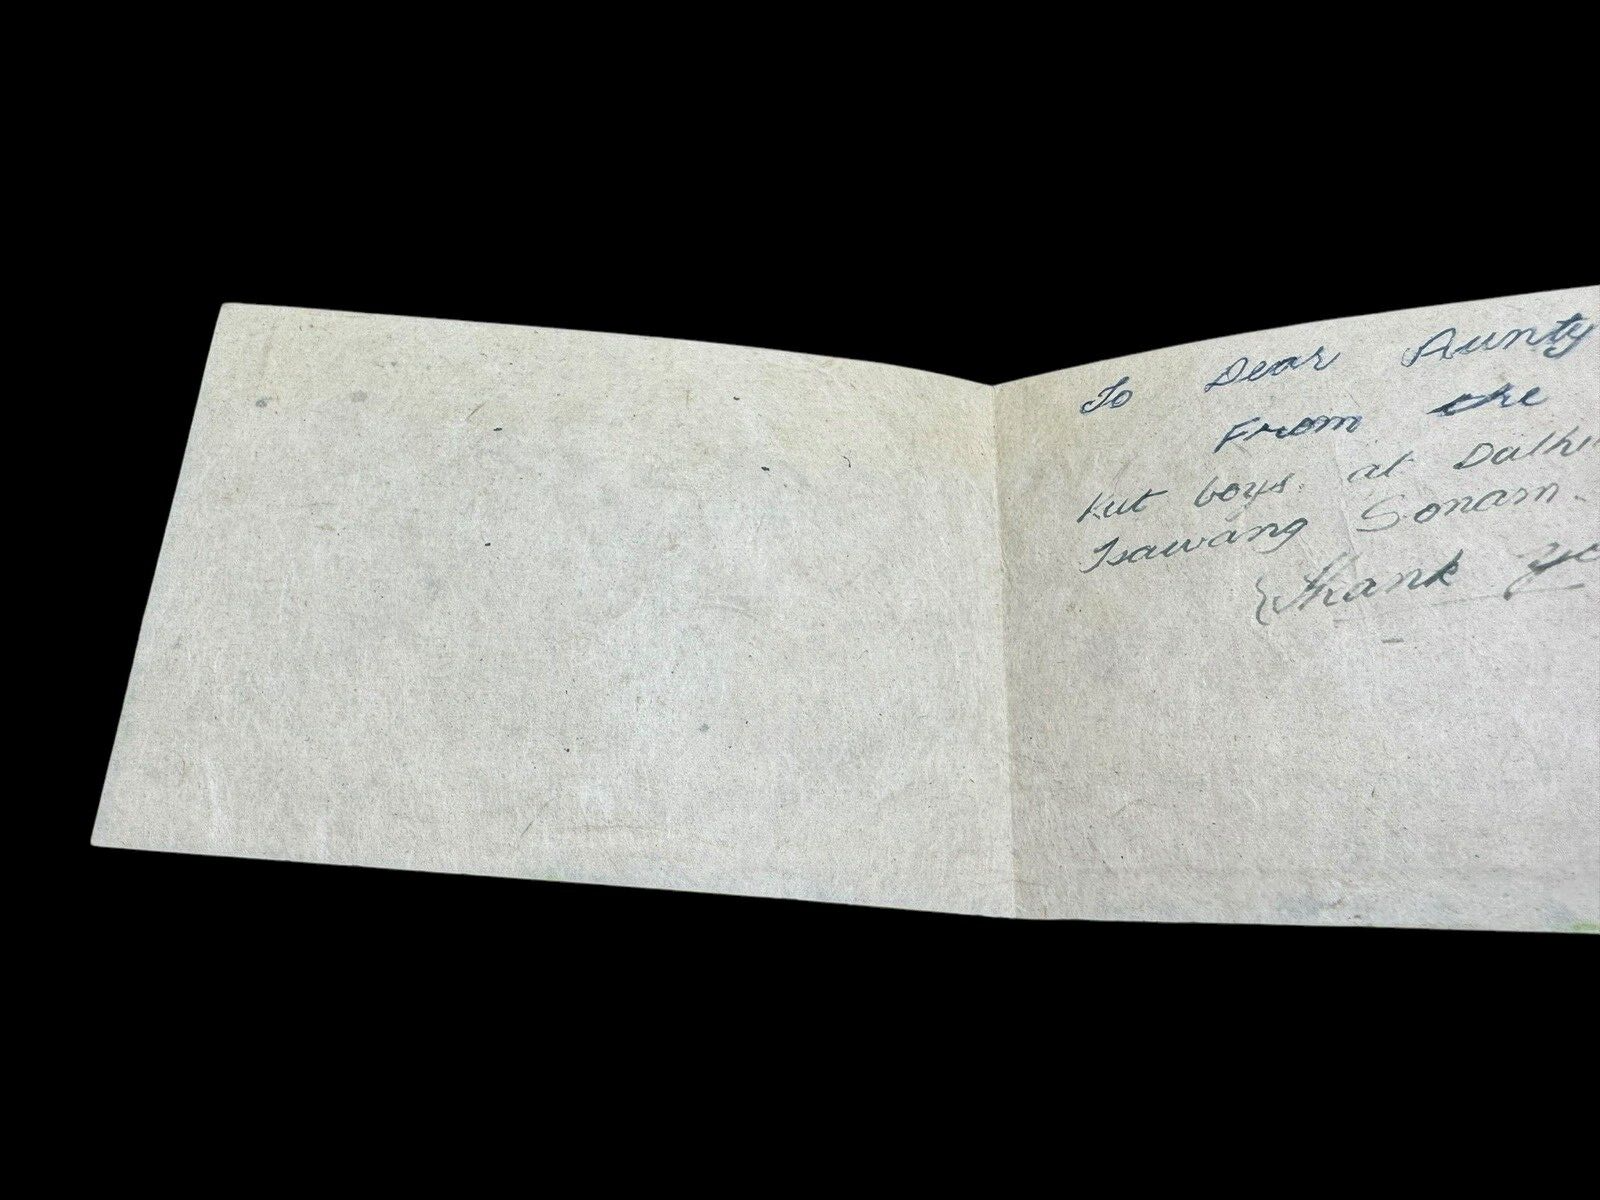 To Dear Aunty
From the
hut boys. at
Tsawang Sonam.
{Thank